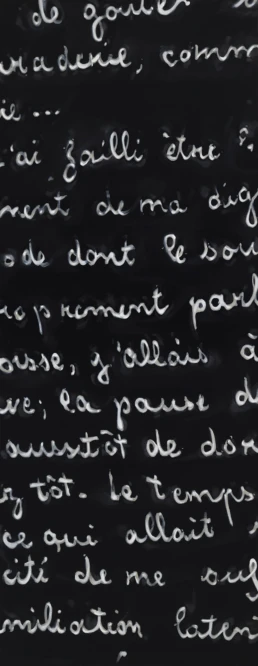 de goûter
raderie, comm
ie...
'ai failli être
ment de ma dig
ode dont le sou
roprement parl
ousse, j'allais à
ive; la pause d
aussitôt de dor
z tôt. Le temps
ce qui allait
cité de me suf
miliation laten